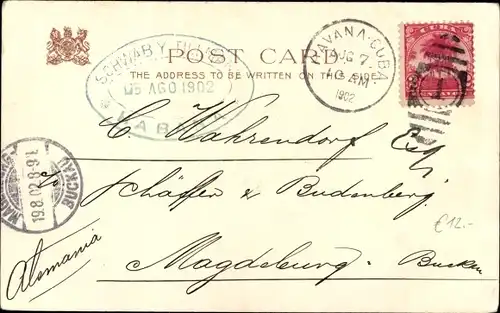 POST CARD
THE ADDRESS TO BE WRITTEN ON THIS SIDE.
SCHWAB Y TILLMANN
05 AGO 1902
HABANA
HAVANA-CUBA
AUG 7
10 AM
1902
CUBA
C. Wahrendorf Esq.
c/o Schäffer & Budenberg
Magdeburg - Buckau
Alemania
MAGDEBURG
19.8.02.8-9V.
BUCKAU
€12.-